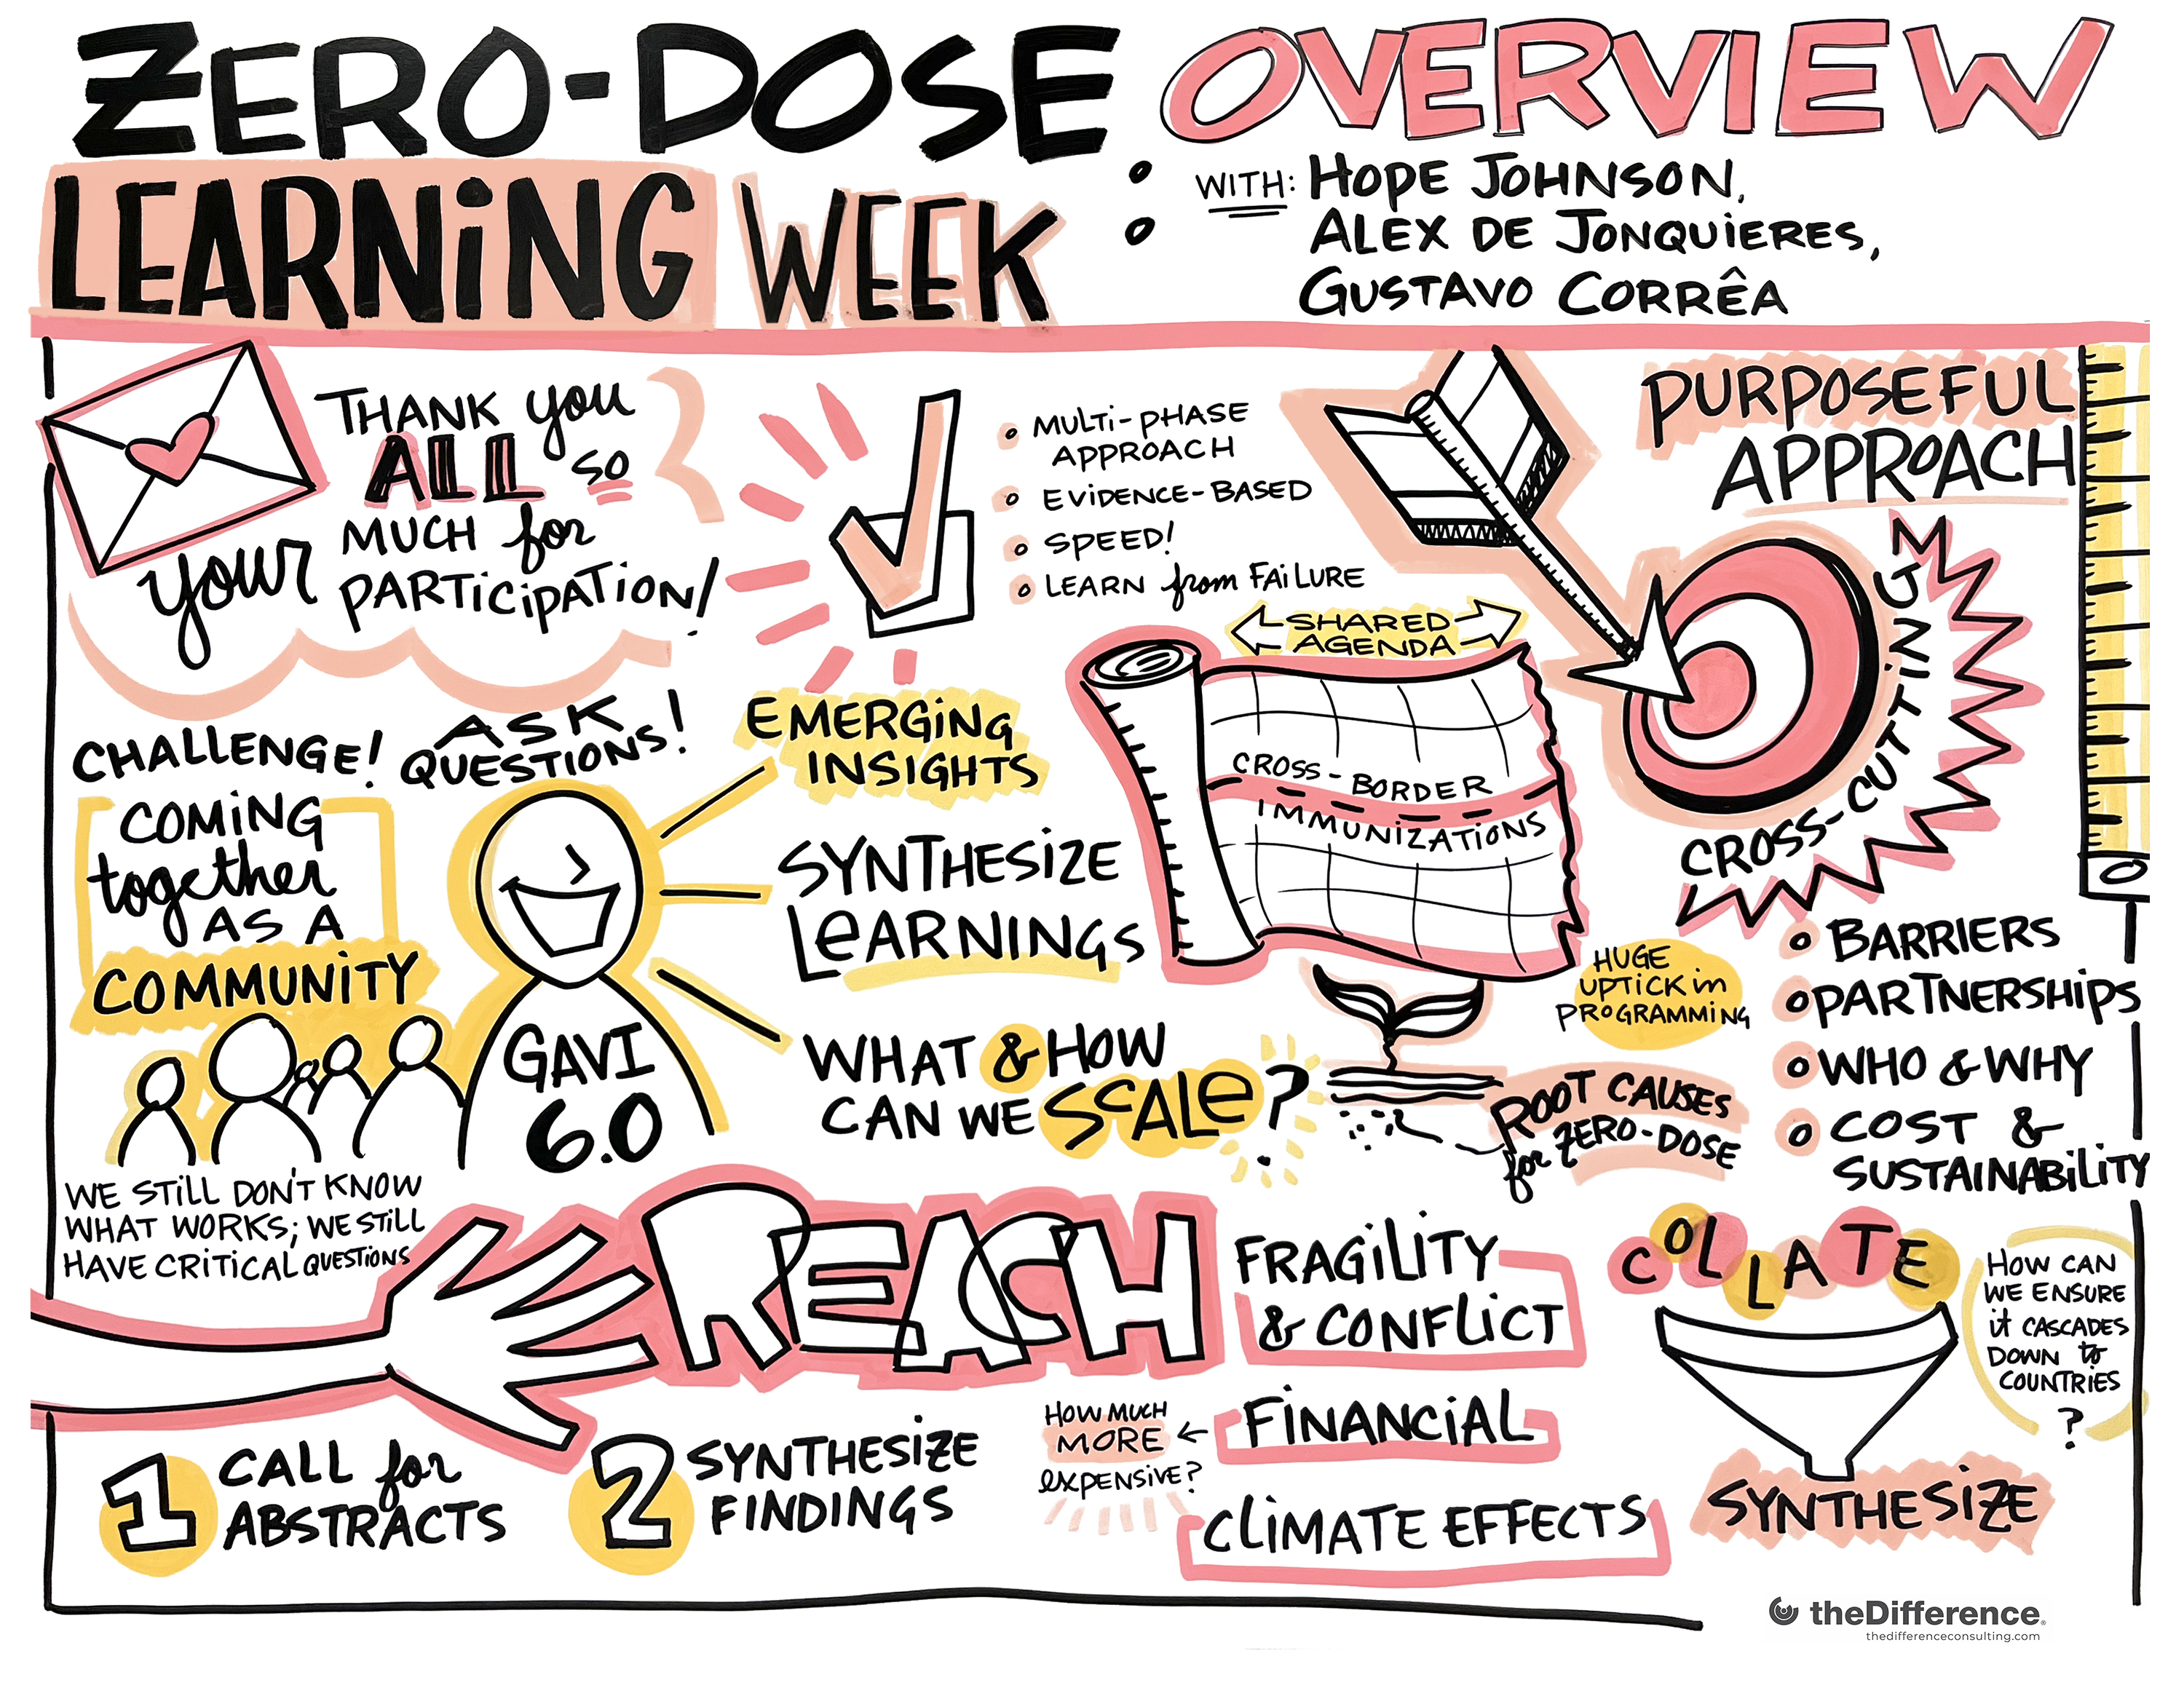 ZERO-DOSE
LEARNING WEEK
:
OVERVIEW
WITH: HOPE JOHNSON,
ALEX DE JONQUIERES,
GUSTAVO CORRÊA
THANK you
ALL so
MUCH for
your PARTICIPATION!
MULTI-PHASE
APPROACH
EVIDENCE-BASED
SPEED!
LEARN from FAILURE
PURPOSEFUL
APPROACH
CROSS-CUTTING
SHARED
AGENDA
CROSS-BORDER
IMMUNIZATIONS
CHALLENGE!
ASK
QUESTIONS!
COMING
together
AS A
COMMUNITY
GAVI
6.0
EMERGING
INSIGHTS
SYNTHESIZE
LEARNINGS
WHAT & HOW
CAN WE SCALE?
HUGE
UPTICK in
PROGRAMMING
ROOT CAUSES
for ZERO-DOSE
BARRIERS
PARTNERSHIPS
WHO & WHY
COST &
SUSTAINABILITY
WE STILL DON'T KNOW
WHAT WORKS; WE STILL
HAVE CRITICAL QUESTIONS
REACH
FRAGILITY
& CONFLICT
FINANCIAL
HOW MUCH
MORE
EXPENSIVE?
CLIMATE EFFECTS
COLLATE
SYNTHESIZE
HOW CAN
WE ENSURE
it CASCADES
DOWN to
COUNTRIES
?
1 CALL for
ABSTRACTS
2 SYNTHESIZE
FINDINGS
theDifference®
thedifferenceconsulting.com